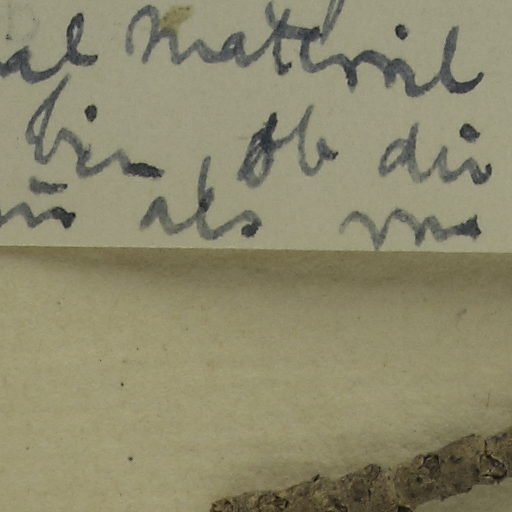 al Material
bin, ob die
als